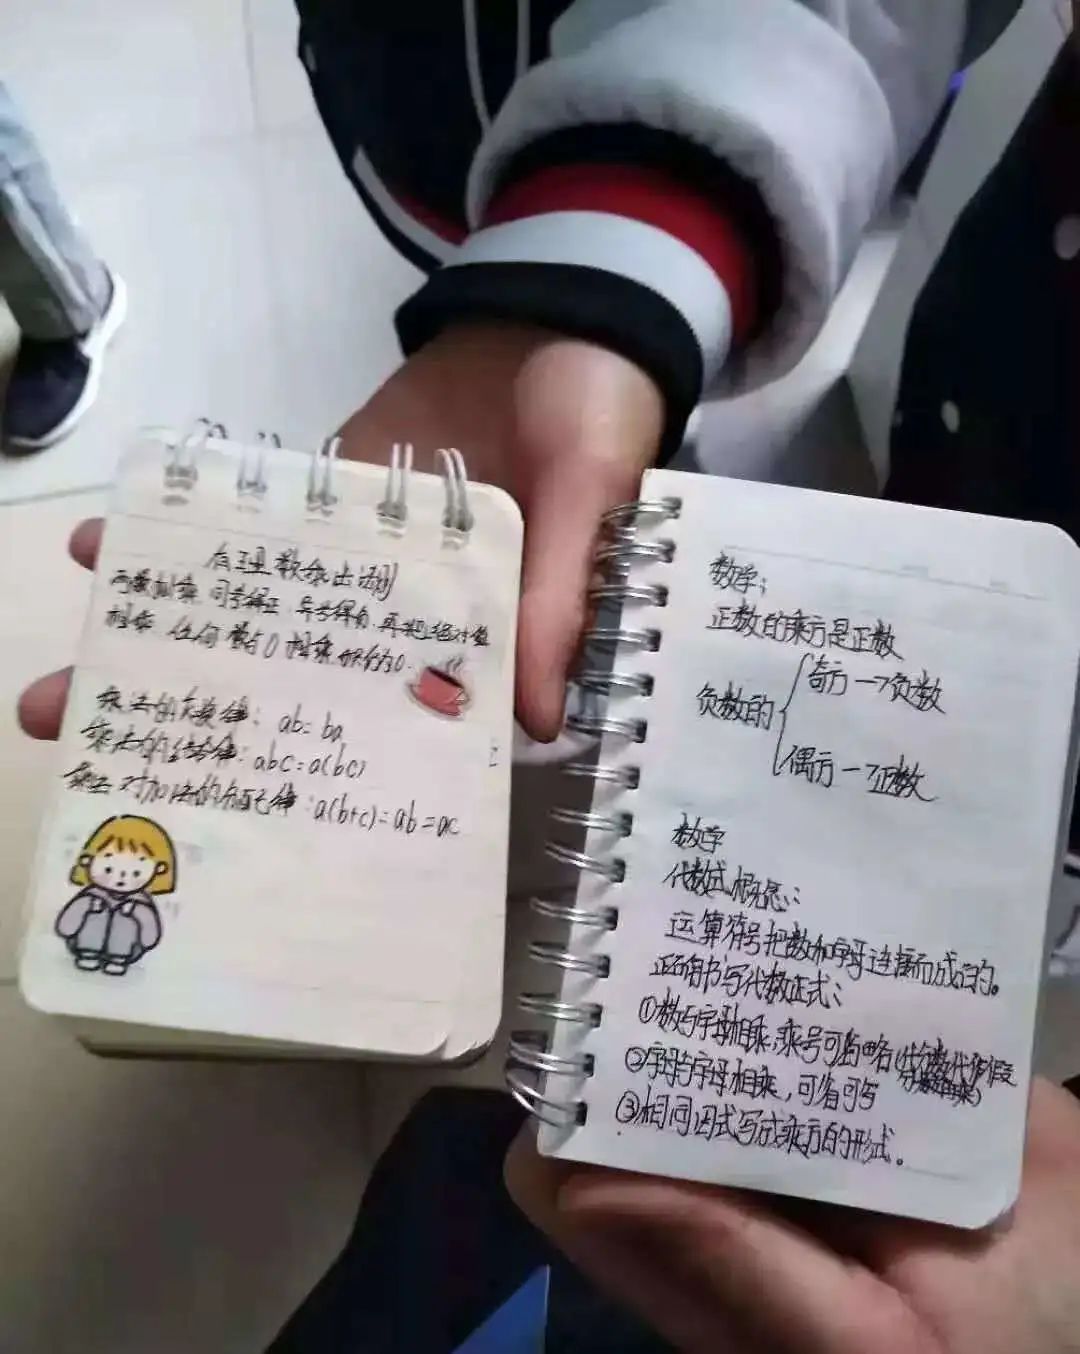 有理数乘法法则
两数相乘,同号得正,异号得负,再把绝对值
相乘,任何数与0相乘,都得0.
乘法的交换律: ab=ba
乘法的结合律: abc=a(bc)
乘法对加法的分配律: a(b+c)=ab=ac
数学:
正数的乘方是正数
负数的
奇方→负数
偶方→正数
数学
代数式概念:
运算符号把数和字母连接而成的。
正确书写代数正式:
①数与字母相乘,乘号可省略
②字母与字母相乘,可省可写
③相同因式写成乘方的形式。